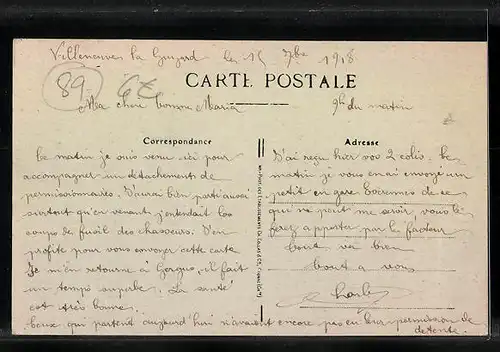 Villeneuve la Guyard le 15 7bre 1918
89
CARTE POSTALE
Ma chère Maria
9h du matin
Correspondance
Adresse
Ce matin je suis venu ici pour
accompagner un détachement de
permissionnaires. J'aurai bien parti aussi
surtout qu'en venant j'entendait les
coups de fusil des chasseurs. J'en
profite pour vous envoyer cette carte
Je m'en retourne à Gorgus, il fait
un temps superbe. La santé
est très bonne.
Ceux qui partent aujourd'hui n'avaient encore pas eu leur permission de
détente.
J'ai reçu hier vos 2 colis. Ce
matin je vous en ai envoyé un
petit en gare de ce
qui ne peut me servir, vous le
ferez apporter par le facteur
tout va bien
tout a vous
Charles